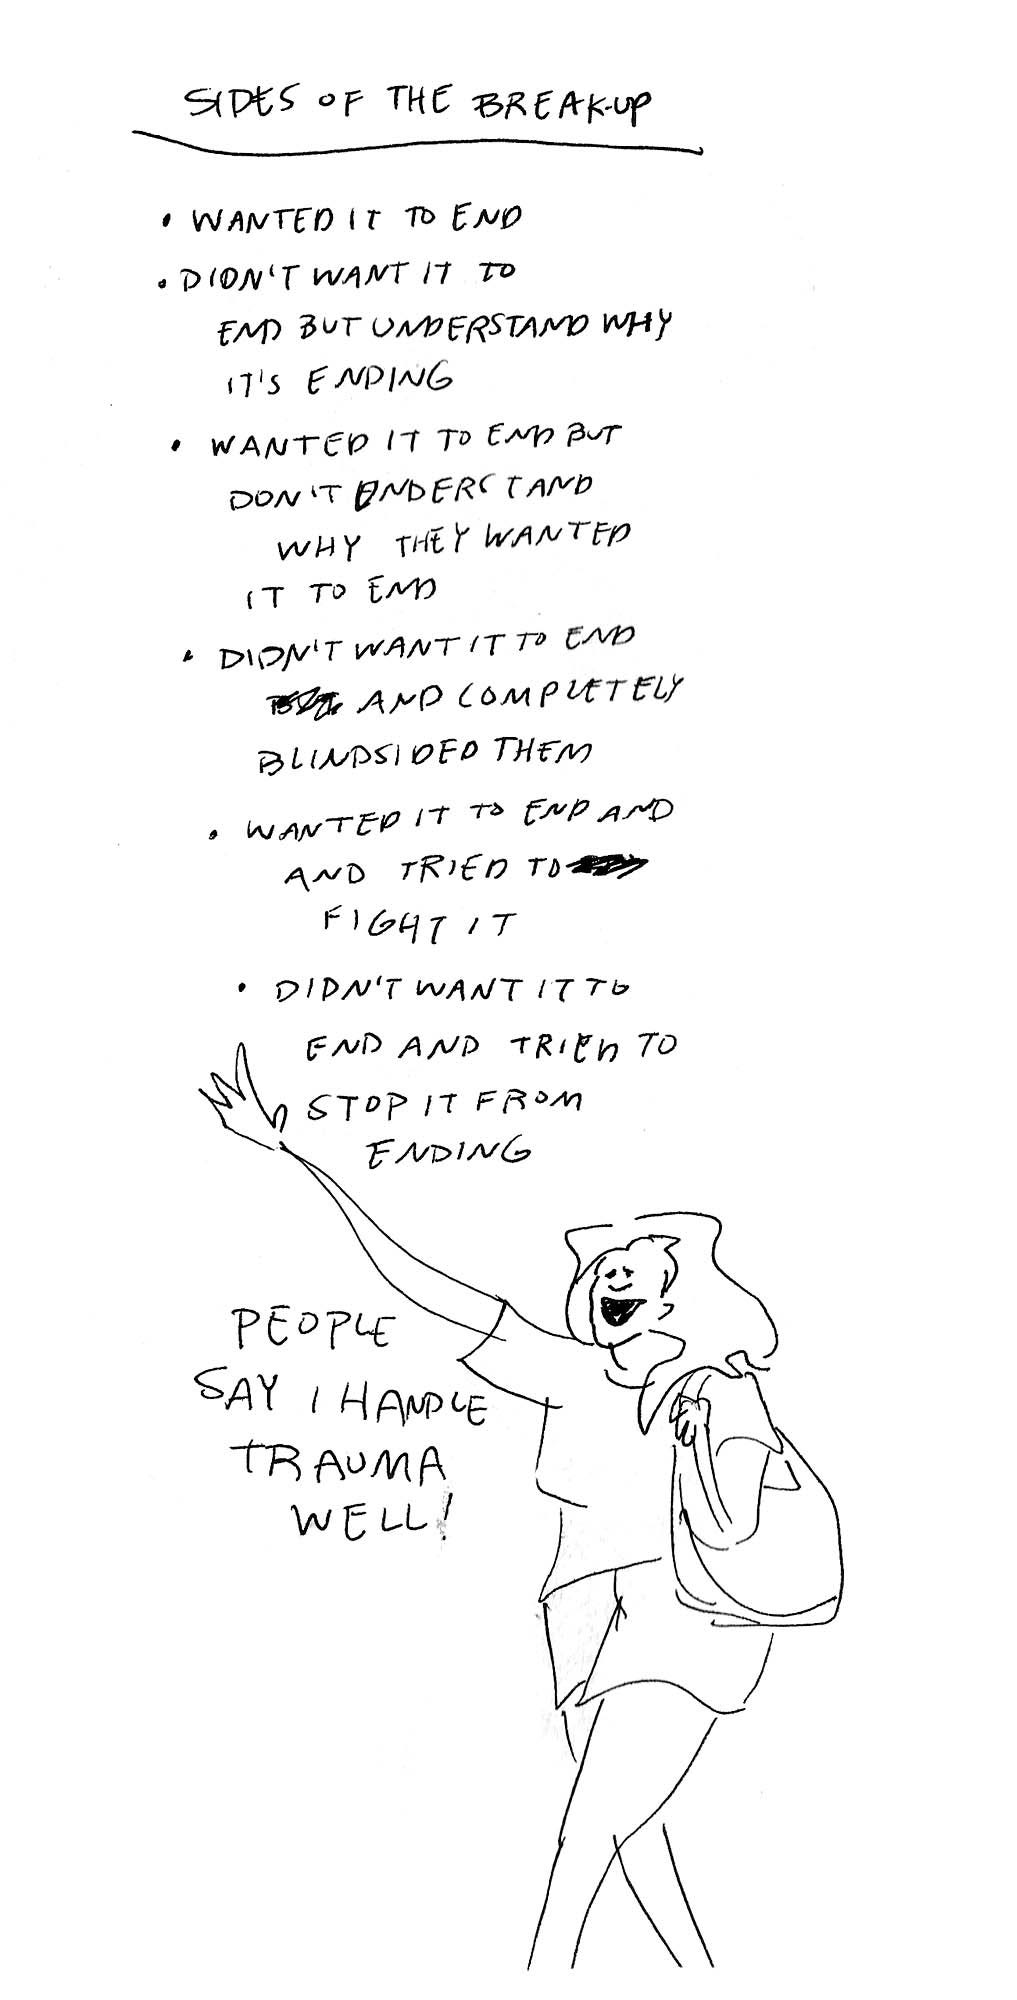 SIDES OF THE BREAK-UP
• WANTED IT TO END
• DIDN'T WANT IT TO
END BUT UNDERSTAND WHY
IT'S ENDING
• WANTED IT TO END BUT
DON'T UNDERSTAND
WHY THEY WANTED
IT TO END
• DIDN'T WANT IT TO END
AND COMPLETELY
BLINDSIDED THEM
• WANTED IT TO END AND
AND TRIED TO
FIGHT IT
• DIDN'T WANT IT TO
END AND TRIED TO
STOP IT FROM
ENDING
PEOPLE
SAY I HANDLE
TRAUMA
WELL!